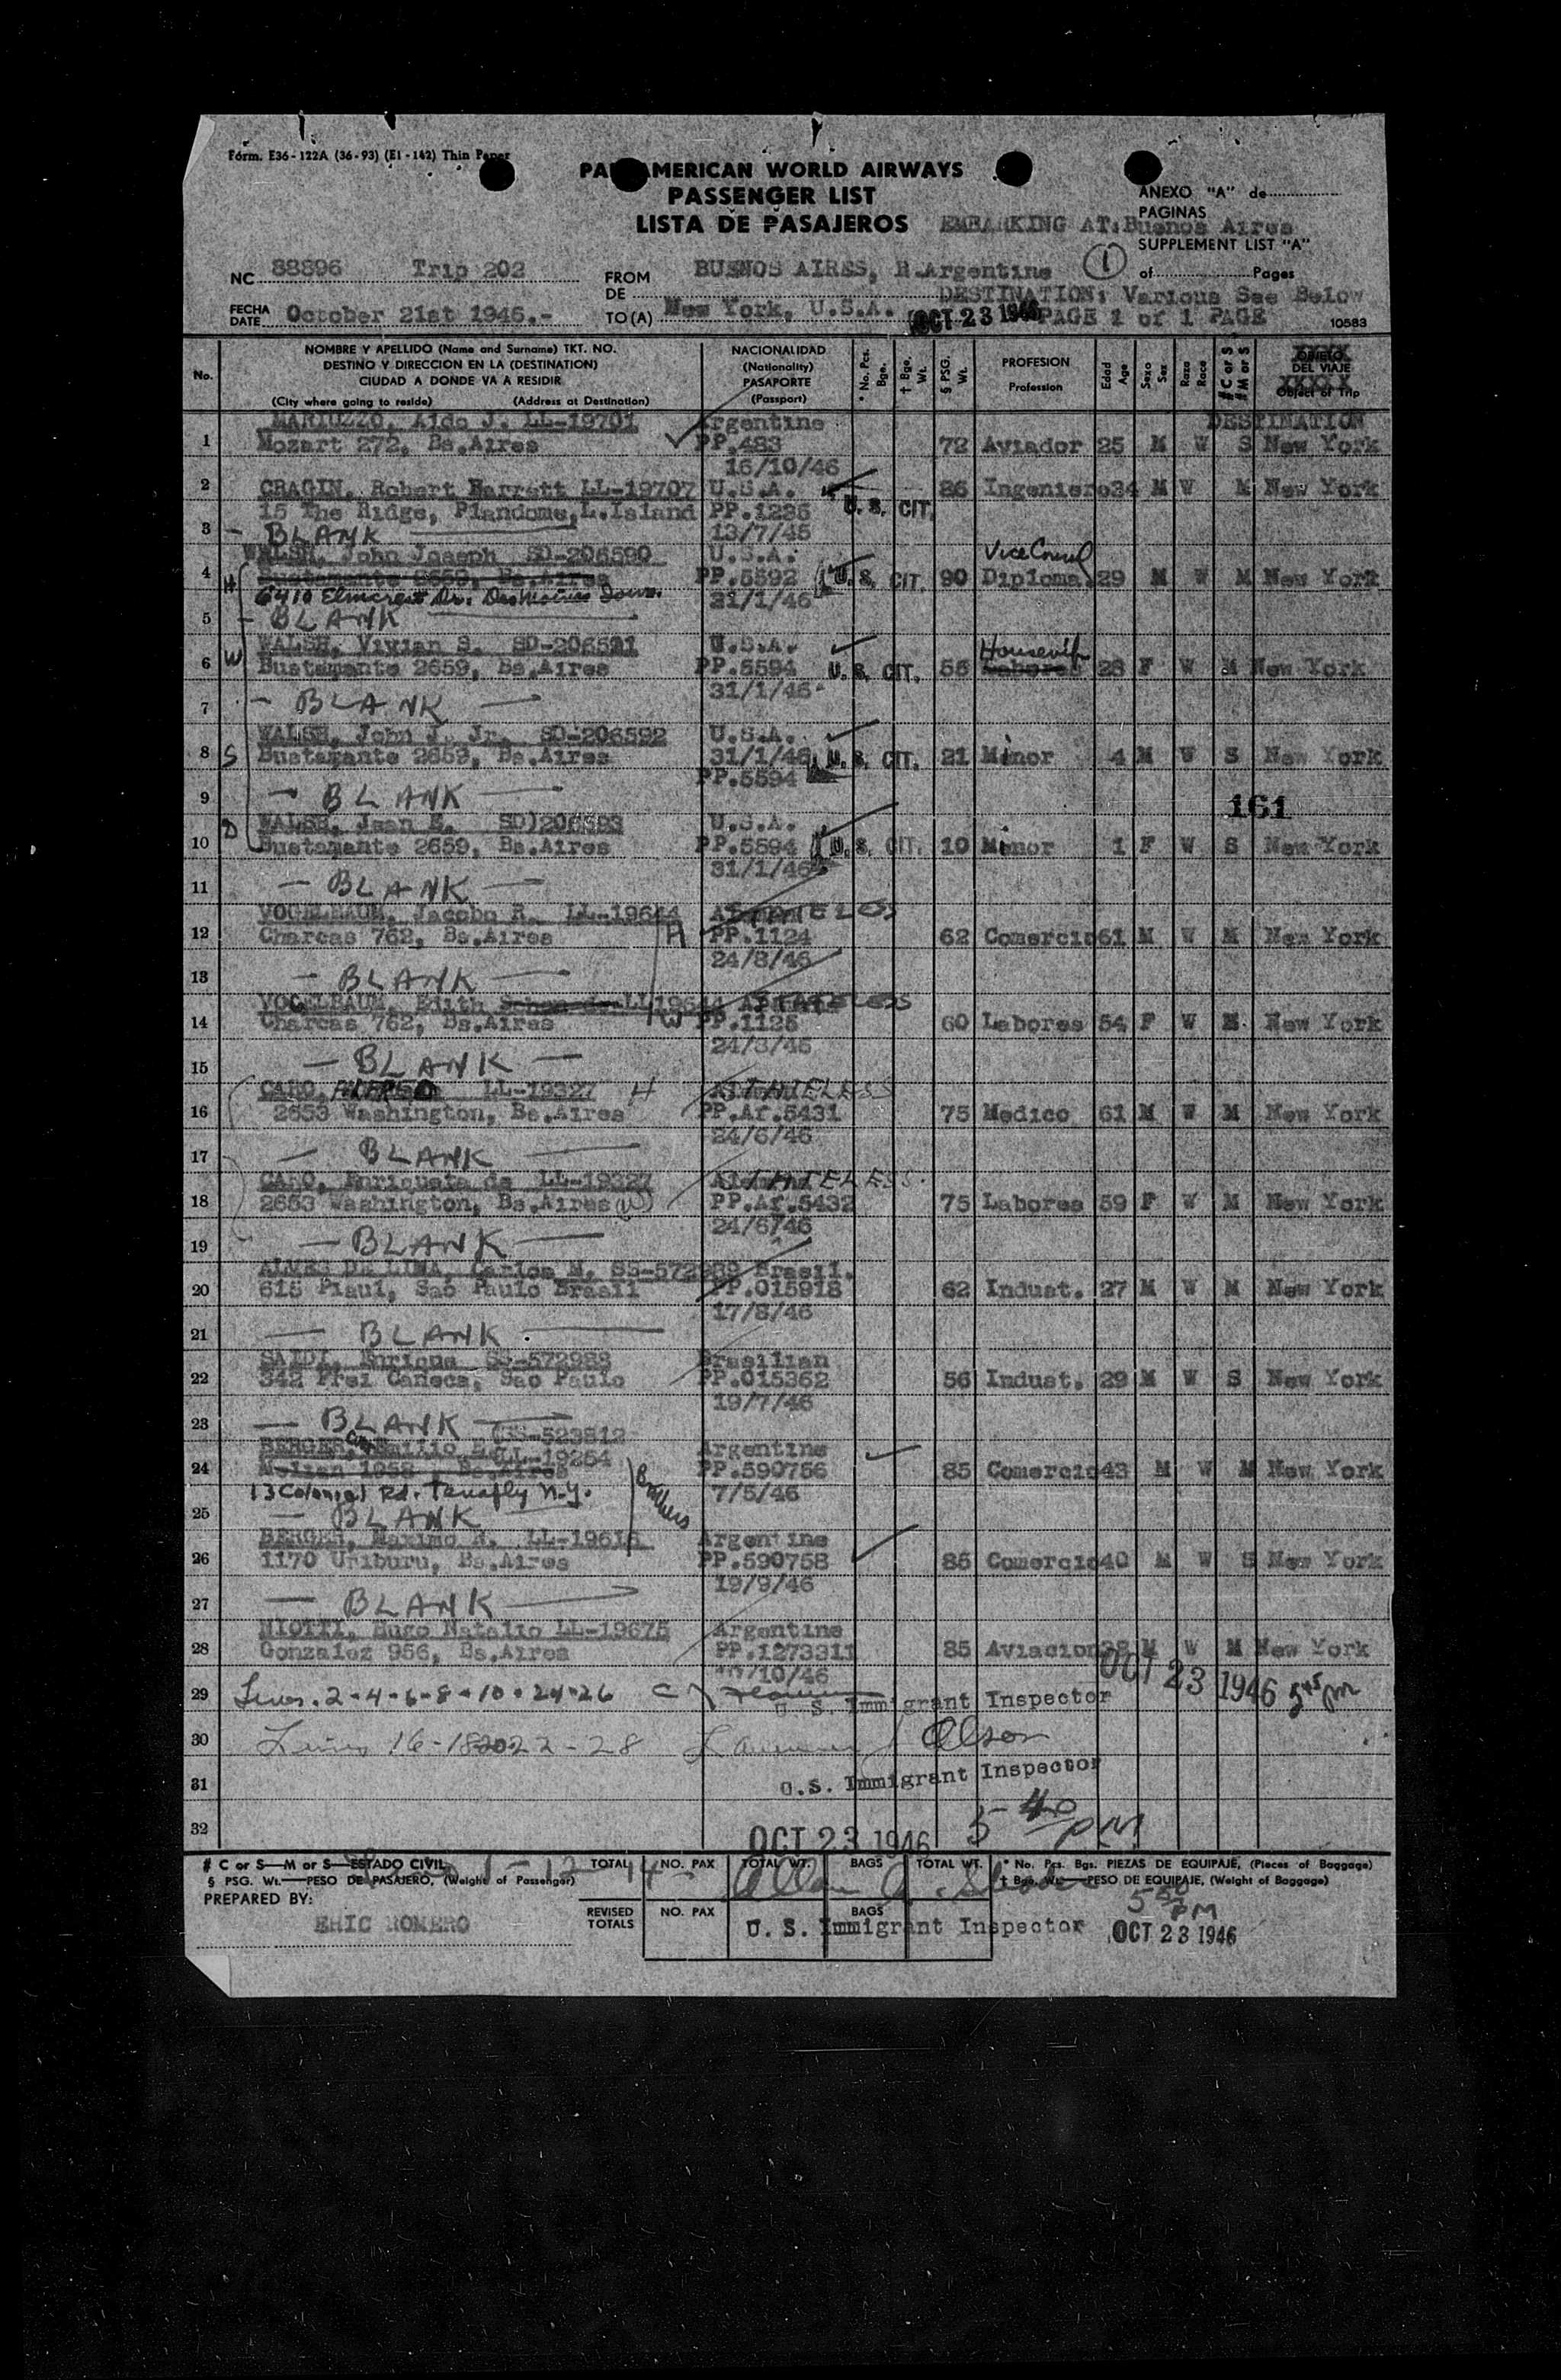 Form. E36-122A (36-93) (E1-142) Thin Paper
PAN AMERICAN WORLD AIRWAYS
PASSENGER LIST
LISTA DE PASAJEROS
EMBARKING AT: Buenos Aires
ANEXO "A" de
PAGINAS
SUPPLEMENT LIST "A"
of Pages
NC 88896 Trip 202
FROM BUENOS AIRES, R.Argentine 1
DE
DESTINATION: Various See Below
FECHA
DATE October 21st 1946.-
TO (A) New York, U.S.A. OCT 23 1946 PAGE 1 of 1 PAGE
10583
No. NOMBRE Y APELLIDO (Name and Surname) TKT. NO.
DESTINO Y DIRECCION EN LA (DESTINATION)
CIUDAD A DONDE VA A RESIDIR
(City where going to reside) (Address at Destination)
NACIONALIDAD
(Nationality)
PASAPORTE
(Passport)
* No. Pcs. Bge.
† Bge. Wt.
§ PSG. Wt.
PROFESION
Profession
Edad
Age
Sexo
Sex
Raza
Race
# C or S
# M or S
DEL VIAJE
Object of Trip
DESTINATION
MARIUZZO, Aldo J. LL-19701 Argentine
1 Mozart 272, Bs.Aires PP.483 72 Aviador 25 M W S New York
16/10/46
2 CRAGIN, Robert Barrett LL-19707 U.S.A. 86 Ingeniero 34 M W M New York
15 The Ridge, Plandome, L.Island PP.1235 U. S. CIT.
3 - BLANK 13/7/45
WALSH, John Joseph SD-206590 U.S.A. Vice Consul
4 H Bustamante 2659, Bs.Aires PP.5592 U. S. CIT. 90 Diploma. 29 M W M New York
6410 Elmcrest Dr. Des Moines Iowa. 31/1/46
5 - BLANK
WALSH, Vivian S. SD-206591 U.S.A. Housewife
6 W Bustamante 2659, Bs.Aires PP.5594 U. S. CIT. 56 Labores 28 F W M New York
31/1/46
7 - BLANK -
WALSH, John J. Jr. SD-206592 U.S.A.
8 S Bustamante 2659, Bs.Aires 31/1/46 U. S. CIT. 21 Minor 4 M W S New York
PP.5594
9 - BLANK - 161
D WALSH, Jean E. SD)206593 U.S.A.
10 Bustamante 2659, Bs.Aires PP.5594 U. S. CIT. 10 Minor 1 F W S New York
31/1/46
11 - BLANK -
VOGELBAUM, Jacobo R. LL-19644 STATELESS
12 Charcas 762, Bs.Aires H PP.1124 62 Comercio 61 M W M New York
24/8/46
13 - BLANK -
VOGELBAUM, Edith LL19644 STATELESS
14 Charcas 762, Bs.Aires W PP.1125 60 Labores 54 F W M New York
15 - BLANK -
CARO, ALFRED LL-19327 H STATELESS
16 2653 Washington, Bs.Aires PP.Ar.5431 75 Medico 61 M W M New York
24/6/46
17 - BLANK -
CARO, Enriqueta de LL-19327 STATELESS
18 2653 Washington, Bs.Aires W PP.Ar.5432 75 Labores 59 F W M New York
24/6/46
19 - BLANK -
ALVES DE LIMA, Carlos M. SS-572989 Brasil.
20 615 Piaui, Sao Paulo Brasil PP.015918 62 Indust. 27 M W M New York
17/8/46
21 - BLANK -
SAIDI, Enrique SS-572988 Brasilian
22 342 Frei Caneca, Sao Paulo PP.015362 56 Indust. 29 M W S New York
19/7/46
23 - BLANK - SS-523812
BERGER, Emilio E. LL-19254 Argentine
24 PP.590756 85 Comercio 43 M W M New York
13 Colonial Rd. Tenafly N.Y. Brothers 7/5/46
25 - BLANK
BERGER, Maximo A. LL-19615 Argentine
26 1170 Uriburu, Bs.Aires PP.590758 85 Comercio 40 M W S New York
19/9/46
27 - BLANK -
MIOTTI, Hugo Natalio LL-19675 Argentine
28 Gonzalez 956, Bs.Aires PP.1273311 85 Aviacion 38 M W M New York
29 Lines. 2-4-6-8-10-24-26 U. S. Immigrant Inspector OCT 23 1946 5 45 PM
30 Lines 16-18-20-22-28 Olson
31 U.S. Immigrant Inspector
32 OCT 23 1946 5 40 PM
# C or S—M or S—ESTADO CIVIL
§ PSG. Wt.—PESO DE PASAJERO, (Weight of Passenger)
TOTAL NO. PAX TOTAL WT. BAGS TOTAL WT.
* No. Pcs. Bgs. PIEZAS DE EQUIPAJE, (Pieces of Baggage)
† Bge. Wt.—PESO DE EQUIPAJE, (Weight of Baggage)
PREPARED BY:
ERIC ROMERO
REVISED
TOTALS NO. PAX BAGS
U. S. Immigrant Inspector PM OCT 23 1946